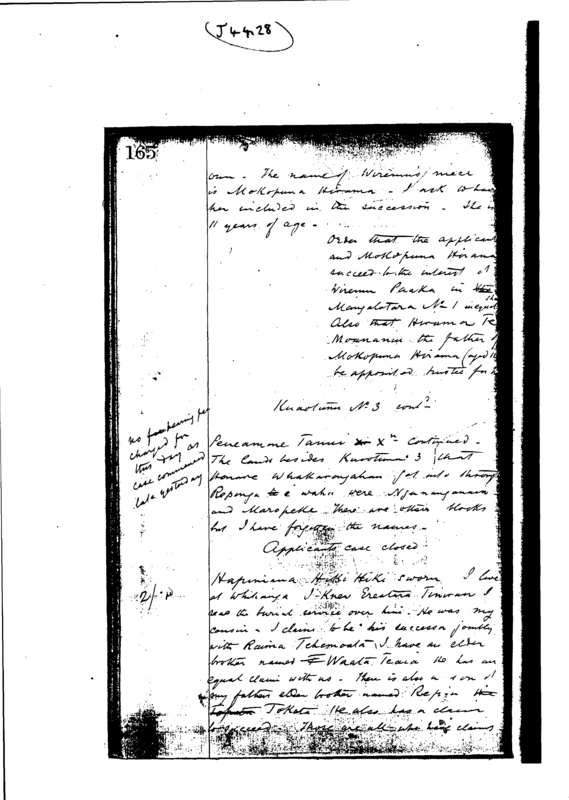 J 4428
165
own. The name of Wiremu's niece
is Mokopuna Hirama. I ask to have
her included in the succession. She is
11 years of age.
Order that the applicant
and Mokopuna Hirama
succeed to the interest of
Wiremu Paaka in the
Mangatotara No 1 in equal
Also that Hirama Te
the father of
Mokopuna Hirama (aged 11
be appointed trustee for
Kuaotunu No 3 contd
no hearing fee
charged for
this day as
case commenced
late yesterday
Tanui Xn continued.
The lands besides Kuaotunu 3 that
Honore Whakarongahau got into through
Roponga were
and Maropeke. There are other blocks
but I have forgotten the names.
Applicants case closed
2/-
Hapimana Hiki Hiki sworn. I live
at Whitianga I knew Ereatara I
read the burial service over him. He was my
cousin. I claim to be his successor jointly
with Raima I have an elder
brother named Waata He has an
equal claim with us. There is also a son of
my fathers elder brother named Repia
Tokata He also has a claim
to succeed. Those are all who have claims